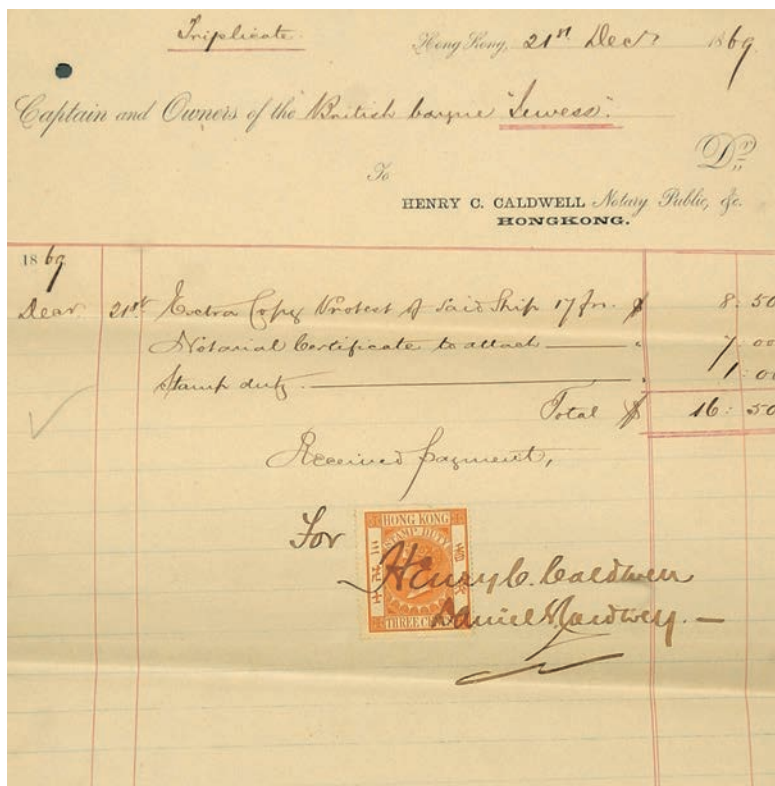 Triplicate
Hong Kong, 21st Decr 1869
Captain and Owners of the British barque "Lewess".
Dr
To
HENRY C. CALDWELL Notary Public, &c.
HONGKONG.
1869
Decr 21st Extra Copy Protest of said Ship 17 fos. $ 8:50
Notarial Certificate to attach " 7:00
Stamp duty " 1:00
Total $ 16:50
Received payment,
For
HONG KONG
STAMP DUTY
Henry C. Caldwell
Daniel Caldwell
THREE CENTS